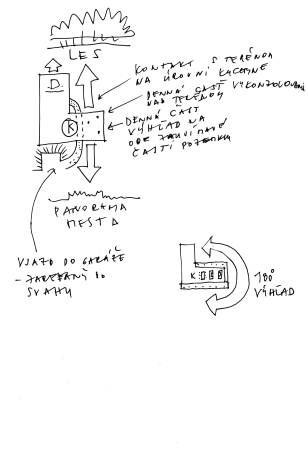 LES
D.
KONTAKT S TERÉNOM
NA ÚROVNI KUCHYNE
DENNÁ ČASŤ VYKONZOLOVANÁ
NAD TERÉNOM
DENNÁ ČASŤ
VÝHĽAD NA
OBE
ČASTI POZEMKU
K
PANORAMA
MESTA
VJAZD DO GARÁŽE
- ZAREZANÝ DO
SVAHU
K
180°
VÝHĽAD